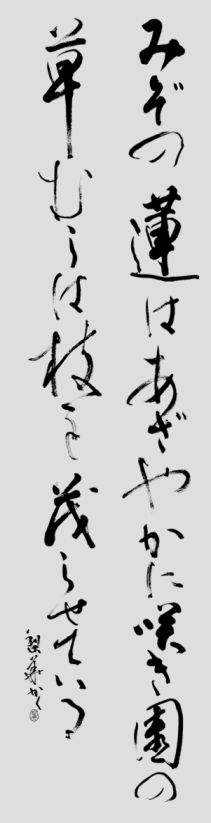 みぞの蓮はあざやかに咲き園の
草むらは枝を茂らせている
梨華かく